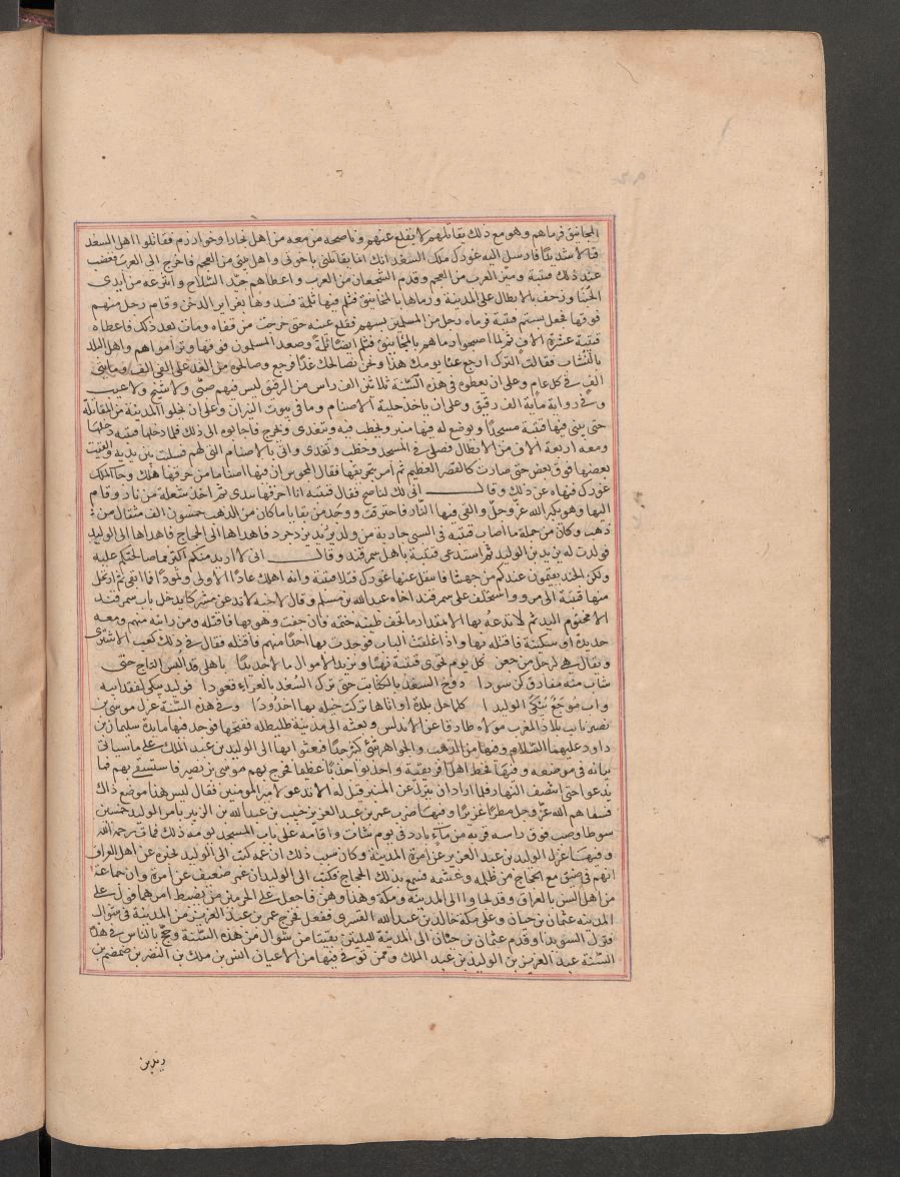 المجانيق فرماهم وهو مع ذلك يقاتلهم لا يقلع عنهم وناصحه من معه من اهل بخارا وخوارزم فقاتلوا اهل السغد
قتالا شديدًا فارسل اليه غوزك ملك السغد انك انما تقاتلني باخوتي واهل بيتي من العجم فاخرج الى العرب فغضب
عند ذلك قتيبة وميّز العرب من العجم وقدم الشجعان من العرب واعطاهم جيّد السّلاح وانتزعه من ايدي
الجبنا وزحف بالابطال على المدينة ورماها بالمجانيق فثلم فيها ثلمة فسدوها بغراير الدخن وقام رجل منهم
فوقها فجعل يشتم قتيبة فرماه رجل من المسلمين بسهم فقلع عينه حتى خرجت من قفاه ومات بعد ذلك فاعطاه
قتيبة عشرة الاف ثم لما اصبحوا رماهم بالمجانيق فثلم ايضًا ثلمة وصعد المسلمون فوقها وتراموا هم واهل البلد
بالنشاب فقالت الترك ارجع عنا يومك هذا ونحن نصالحك غدًا فرجع وصالحوه من الغد على الفي الف ومايتي
الف في كل عام وعلى ان يعطوه في هذه السّنة ثلاثين الف راس من الرقيق ليس فيهم صبّي ولا شيخ ولا عيب
وفي رواية ماية الف رقيق وعلى ان ياخذ حلية الاصنام وما في بيوت النيران وعلى ان يخلوا المدينة من المقاتلة
حتى يبني فيها قتيبة مسجدًا ويوضع له فيها منبر ويخطب فيه ويتغدى ويخرج فاجابوه الى ذلك فلما دخلها قتيبة دخلها
ومعه اربعة الاف من الابطال فصلى في المسجد وخطب وتغدى واتى بالاصنام التي لهم فسلبت بين يديه والقيت
بعضها فوق بعض حتى صارت كالقصر العظيم ثم امر بتحريقها فقال المجوس ان فيها اصناما من حرقها هلك وجا الملك
غوزك فنهاه عن ذلك وقال اني لك ناصح فقال قتيبة انا احرقها بيدي ثم اخذ شعلة من نار وقام
اليها وهو يكبر الله عزّ وجلّ والقى فيها النّار فاحترقت ووجد من بقايا ما كان من الذهب خمسون الف مثقال من
ذهب وكان من جملة ما اصاب قتيبة في السبي جارية من ولد يزد جرد فاهداها الى الحجاج فاهداها الى الوليد
فولدت له يزيد بن الوليد ثم استدعى قتيبة باهل سمرقند وقال اني لا اريد منكم اكثر مما صالحتكم عليه
ولكن الجند يقيمون عندكم من جهتنا فانتقل عنها غوزك فتلا قتيبة وانه اهلك عادًا الاولى وثمودًا فما ابقى ثم ارتحل
منها قتيبة الى مرو واستخلف على سمرقند اخاه عبد الله بن مسلم وقال لاخيه لا تدعن مشركا يدخل باب سمرقند
الا مختوم اليد ثم لا تدعه بها الا مقدار ما تجف طينة ختمه فان جفت وهو بها فاقتله ومن رايته منهم ومعه
حديدة او سكينة فاقتله بها واذا اغلقت الباب فوجدت بها احدًا منهم فاقتله فقال في ذلك كعب الاشقري
ويقال هي لرجل من جعفي كل يوم يحوي قتيبة نهبًا ويزيد الاموال مالا جديدًا باهلي قد البس التاج حتى
شاب منه مفارق كن سودا دوخ السغد بالكتايب حتى ترك السُغد بالعراء قعودا فوليد يبكي لفقد ابيه
واب موجع يُبكّي الوليدا كلما حل بلدة او اتاها تركت خيله بها اخدودًا وفي هذه السّنة عزل موسى بن
نصير نايب بلاد المغرب مولاه طارقا عن الاندلس وبعثه الى مدينة طليطلة ففتحها فوجد فيها مايدة سليمان بن
داود عليهما السّلام وفيها من الذهب والجواهر شي كثير جدًا فبعثوا بها الى الوليد بن عبد الملك على ما سياتي
بيانه في موضعه وفيهَا قحط اهل افريقية واجدبوا جدبًا عظيما فخرج بهم موسى بن نصير فاستسقى بهم فما
يدعوا حتى انتصف النهار فلما اراد ان ينزل عن المنبر قيل له الا تدعو لامير المومنين فقال ليس هذا موضع ذاك
فسقاهم الله عزّ وجل مطرًا غزيرًا وفيهَا ضرب عمر بن عبد العزيز خبيب بن عبد الله بن الزبير بامر الوليد خمسين
سوطا وصب فوق راسه قربة من ماء بارد في يوم شات واقامه على باب المسجد يومه ذلك فمات رحمه الله
وفيهَا عزل الوليد بن عبد الملك عمر بن عبد العزيز عن امرة المدينة وكان سبب ذلك ان عمر كتب الى الوليد يخبره عن اهل العراق
انهم في ضيق مع الحجاج من ظلمه وغشمه فسمع بذلك الحجاج فكتب الى الوليد ان عمر ضعيف عن امرة وان جماعة
من اهل السن بالعراق وقد لجاوا الى المدينة ومكة وهذا وهن فاجعل على الحرمين من يضبط امرهما فولى على
المدينة عثمان بن حيان وعلى مكة خالد بن عبد الله القسري ففعل فخرج عمر بن عبد العزيز من المدينة في شوال
فنزل السويدا وقدم عثمان بن حيّان الى المدينة لليلتين بقيتا من شوال من هذه السّنة وحجّ بالناس في هذه
السّنة عبد العزيز بن الوليد بن عبد الملك وممن توفي فيها من الاعيان انس بن ملك بن النضر بن ضمضم بن
زيد بن